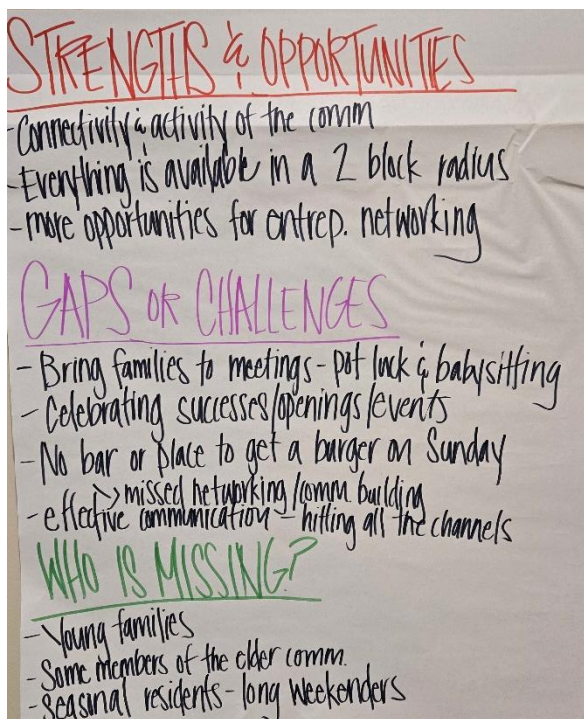 STRENGTHS & OPPORTUNITIES
- Connectivity & activity of the comm
- Everything is available in a 2 block radius
- more opportunities for entrep. networking
GAPS OR CHALLENGES
- Bring families to meetings - pot luck & babysitting
- Celebrating successes/openings/events
- No bar or place to get a burger on Sunday
> missed networking/comm building
- effective communication - hitting all the channels
WHO IS MISSING?
- Young families
- Some members of the elder comm.
- Seasonal residents - long weekenders